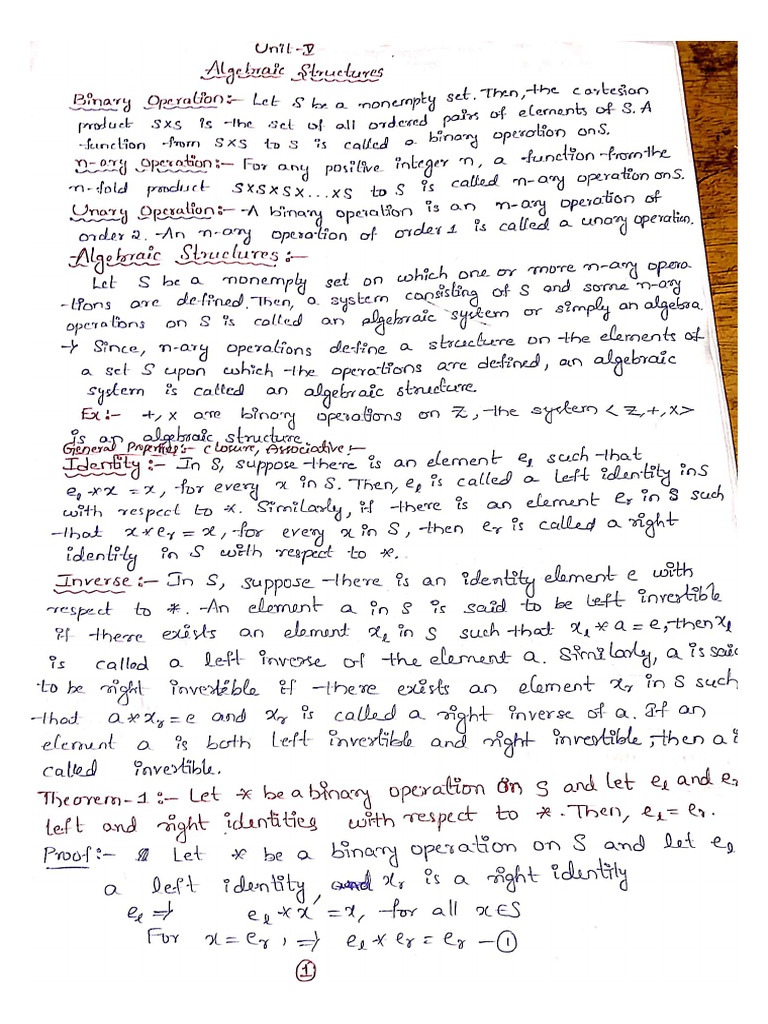 Unit-V
Algebraic Structures
Binary Operation:- Let S be a nonempty set. Then, the cartesian
product S×S is the set of all ordered pairs of elements of S. A
function from S×S to S is called a binary operation on S.
n-ary Operation:- For any positive integer n, a function from the
n-fold product S×S×S×...×S to S is called n-ary operation on S.
Unary Operation:- A binary operation is an n-ary operation of
order 2. An n-ary operation of order 1 is called a unary operation.
Algebraic Structures:-
Let S be a nonempty set on which one or more n-ary opera
-tions are defined. Then, a system consisting of S and some n-ary
operations on S is called an algebraic system or simply an algebra.
→ Since, n-ary operations define a structure on the elements of
a set S upon which the operations are defined, an algebraic
system is called an algebraic structure.
Ex:- +, × are binary operations on Z, the system <Z,+,×>
is an algebraic structure.
General Properties:- Closure, Associative:-
Identity:- In S, suppose there is an element eₗ such that
eₗ * x = x, for every x in S. Then, eₗ is called a left identity in S
with respect to *. Similarly, if there is an element eᵣ in S such
that x * eᵣ = x, for every x in S, then eᵣ is called a right
identity in S with respect to *.
Inverse:- In S, suppose there is an identity element e with
respect to *. An element a in S is said to be left invertible
if there exists an element xₗ in S such that xₗ * a = e, then xₗ
is called a left inverse of the element a. Similarly, a is said
to be right invertible if there exists an element xᵣ in S such
that a * xᵣ = e and xᵣ is called a right inverse of a. If an
element a is both left invertible and right invertible, then a i
called invertible.
Theorem-1:- Let * be a binary operation on S and let eₗ and eᵣ
left and right identities with respect to *. Then, eₗ = eᵣ.
Proof:- Let * be a binary operation on S and let eₗ
a left identity, and xᵣ is a right identity
eₗ ⇒ eₗ * x = x, for all x∈S
For x = eᵣ, ⇒ eₗ * eᵣ = eᵣ — ①
①